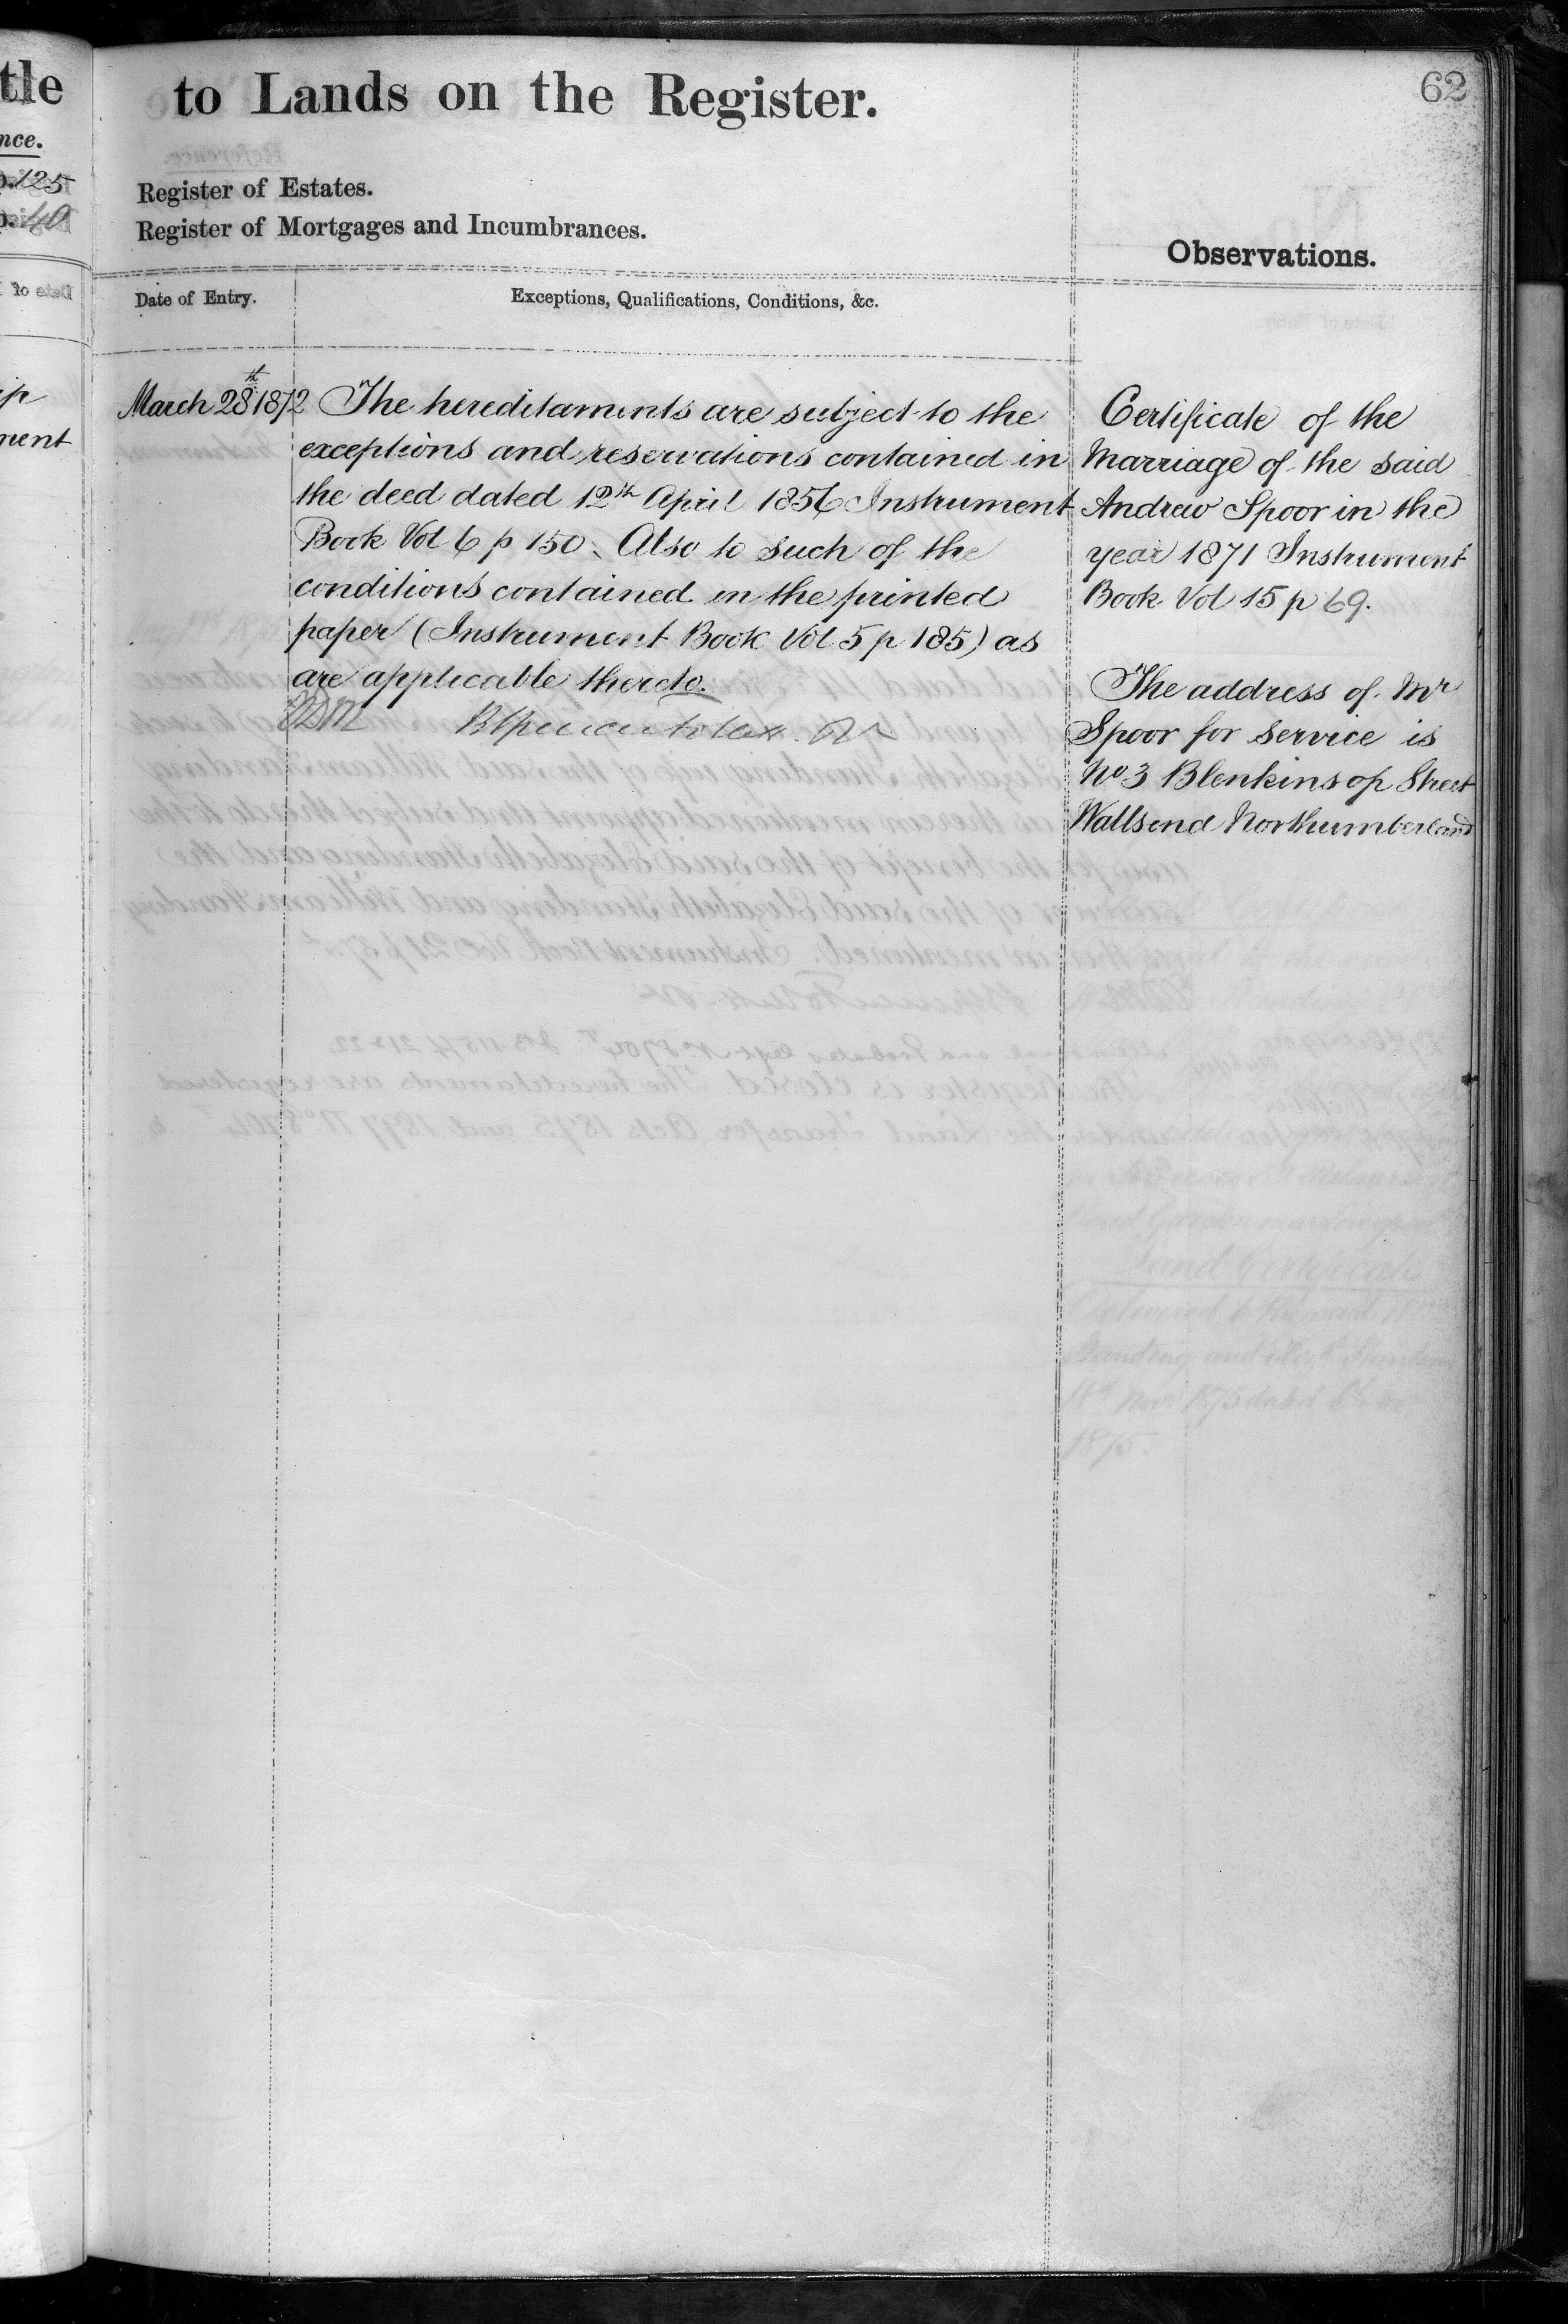 tle
nce.
p. 125
p. 40
ip
ment
to Lands on the Register.
62
Register of Estates.
Register of Mortgages and Incumbrances.
Observations.
Date of Entry.
Exceptions, Qualifications, Conditions, &c.
March 28th 1872
The hereditaments are subject to the
exceptions and reservations contained in
the deed dated 12th April 1856 Instrument
Book Vol 6 p 150. Also to such of the
conditions contained in the printed
paper (Instrument Book Vol 5 p 185) as
are applicable thereto.
Certificate of the
Marriage of the said
Andrew Spoor in the
year 1871 Instrument
Book Vol 15 p 69.
The address of Mr
Spoor for service is
No 3 Blenkinsop Street
Wallsend Northumberland